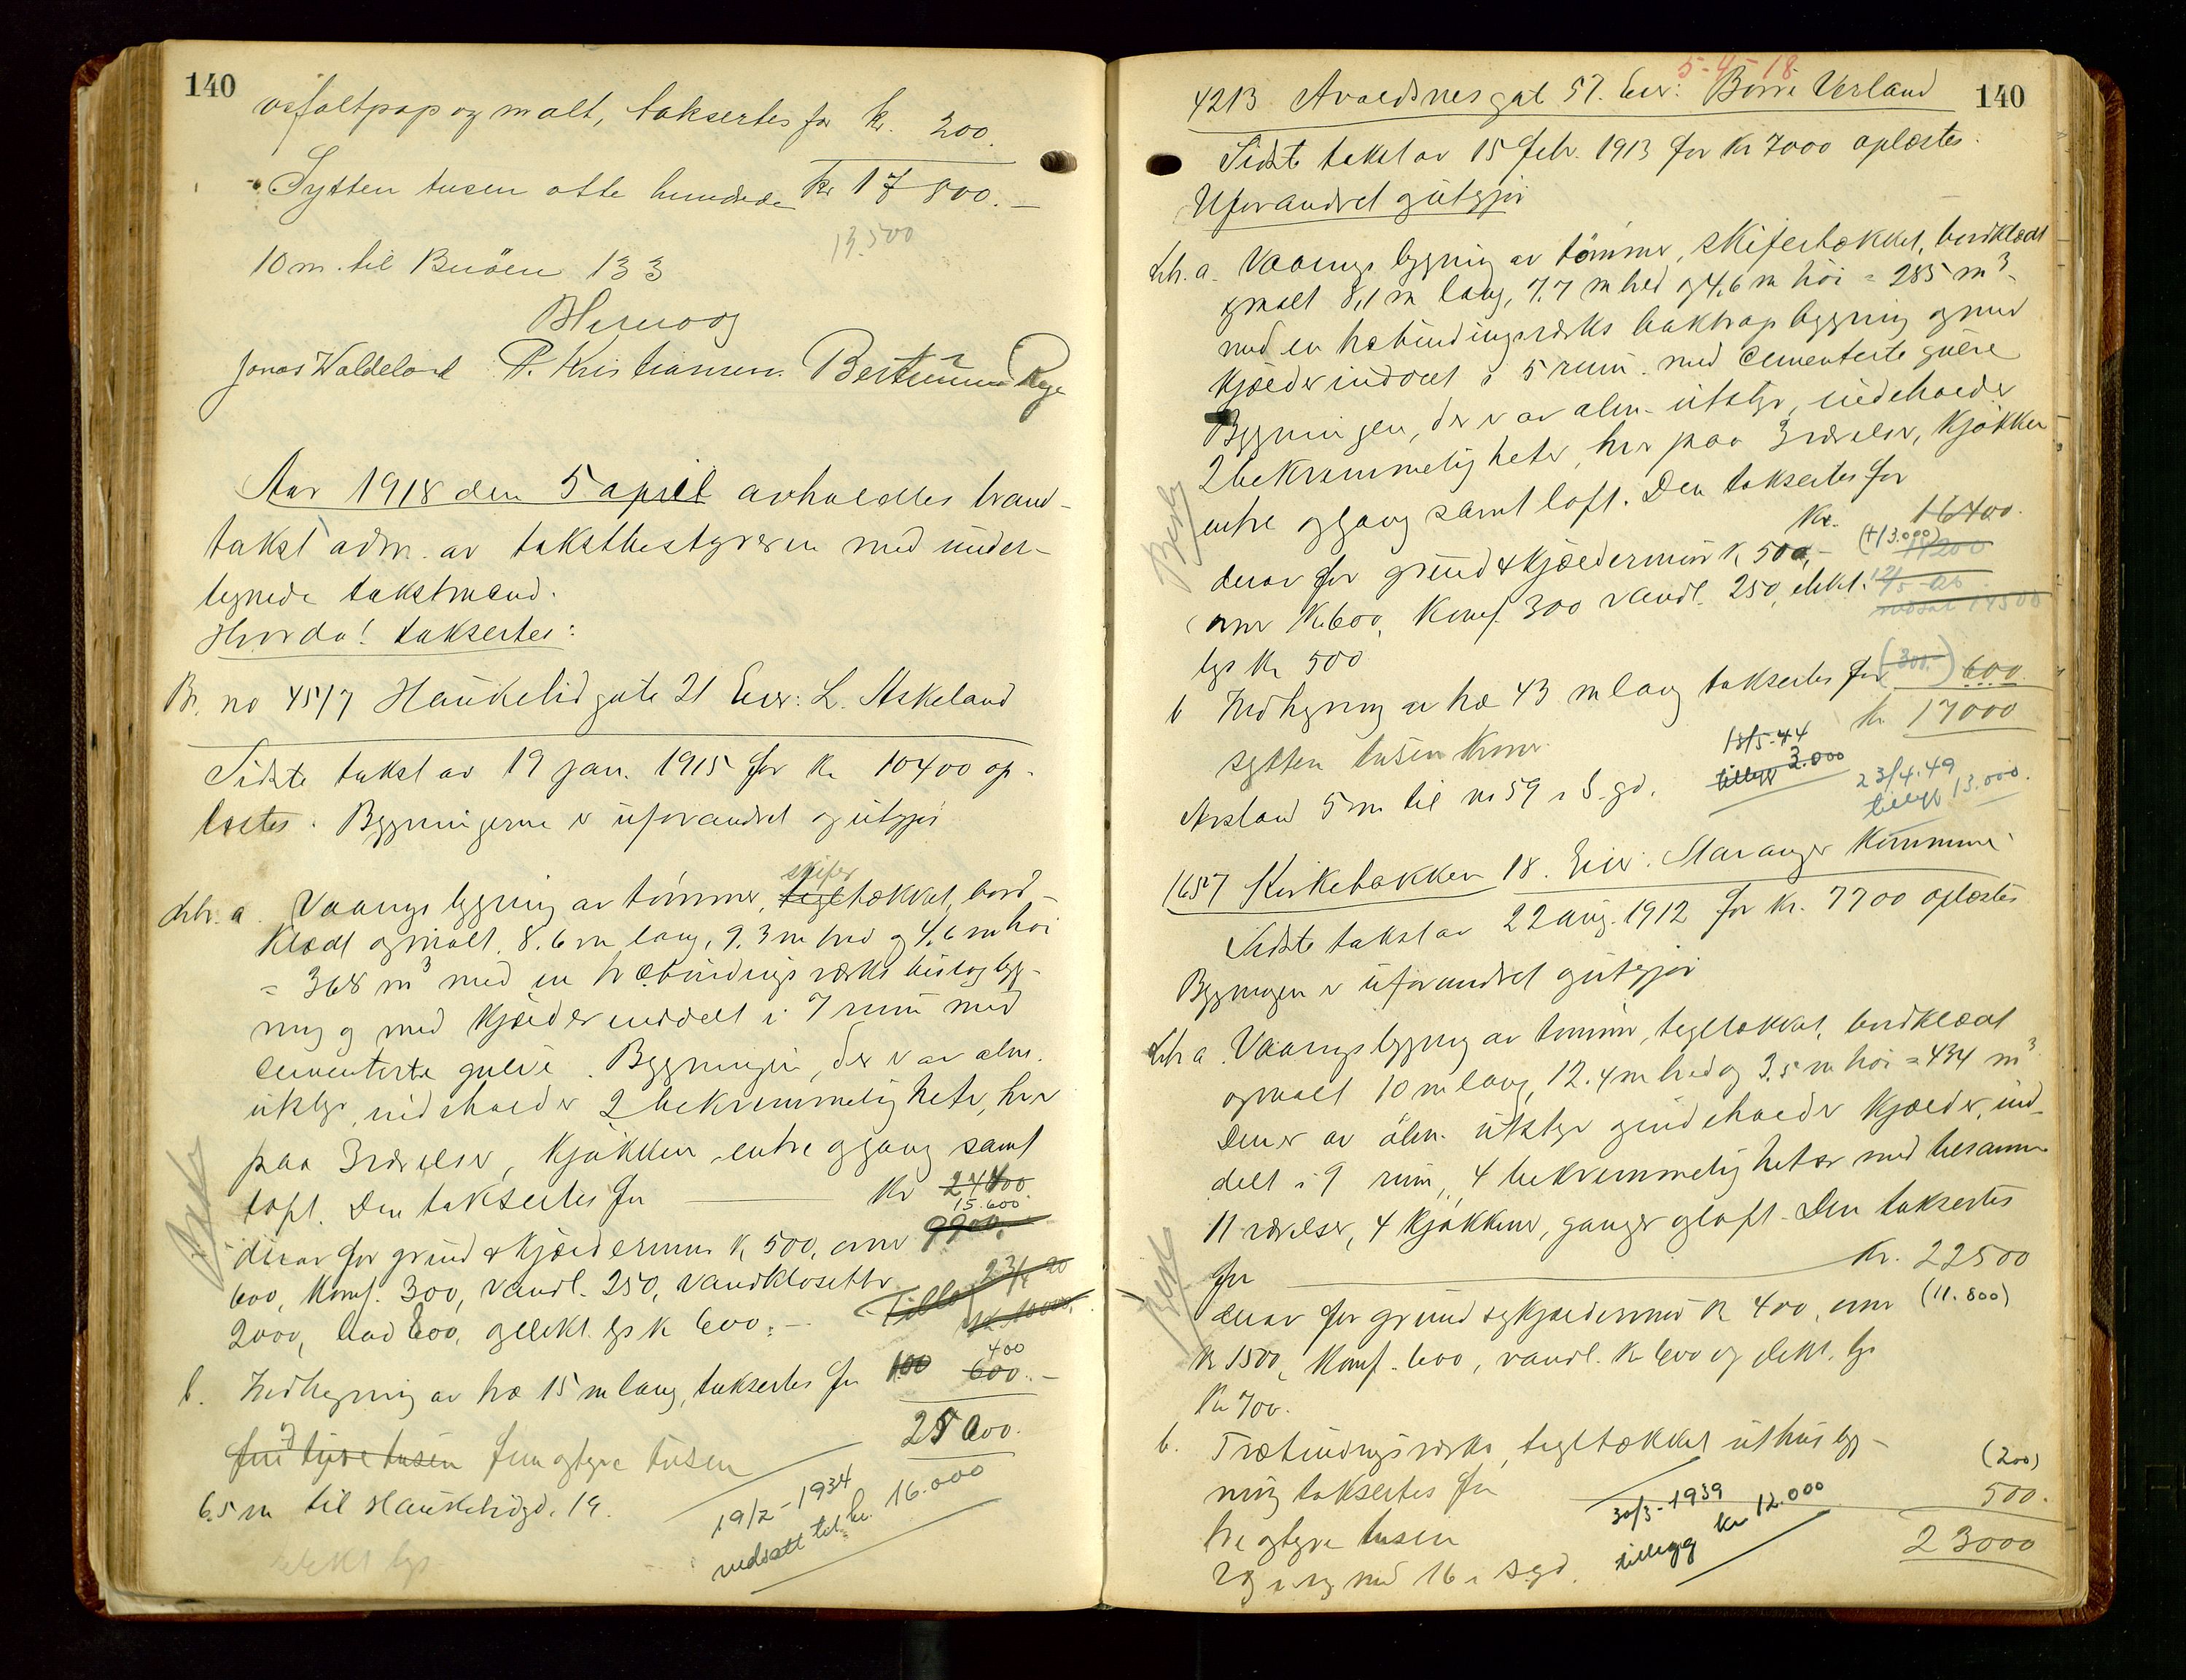 140
asfaltpap og malt, taksertes for kr. 200.
Sytten tusen otte hundrede kr 17 800.-
13.500
10 m. til Buöen 133
Jonas Waldeland P. Kristiansen. Berntsen Rege
Aar 1918 den 5 april avholdtes brand-
takst adm. av takstbestyreren med under-
tegnede takstmænd.
Hvorda! taksertes:
Br. no 4517 Haukelidgate 21 Eier: L. Askeland
Sidste takst av 19 jan. 1915 for kr 10400 op-
læstes. Bygningerne er uforandret og utgjør
skifer
Litr. a. Vaaningsbygning av tømmer, tegltækket, bord-
klædt og malt, 8.6 m lang, 9.3 m bred og 4.6 m høi
= 368 m3 med en træbindingsværks bislagbyg-
ning og med kjælder inddelt i 7 rum med
cementerte gulve. Bygningen, der er av alm.
utstyr, indeholder 2 bekvemmeligheter, hver
paa 3 værelser, kjøkken entre og gang samt
loft. Den taksertes for kr 24400
15.600
derav for grund & kjældermur kr 500, ovner 9900.
600, komf. 300, vandl. 250, vandklosetter
2000, bad 800, og elekt. lys kr 600.-
Tillæg 23/4 20
kr 10000.
400
b. Indhegning av træ 15 m lang, taksertes for 100 600.-
25000.
fem og tyve tusen
6.5 m til Haukelidgd. 19.
19/2-1934
nedsatt til kr. 16.000
elekt lys
5-4-18
4213 Avaldsnesgat 57. Eier: Börre Verland 140
Sidste takst av 15 febr. 1913 for kr 7000 oplæstes.
Uforandret og utgjør
Litr. a. Vaaningsbygning av tömmer, skifertækket, bordklædt
og malt 8,1 m lang, 7.7 m bred og 4,6 m høi = 285 m3.
med en træbindingsværks baktrapbygning og med
kjælder inddelt i 5 rum med cementerte gulve
Bygningen, der er av alm. utstyr, indeholder
2 bekvemmeligheter, hver paa 3 værelser, kjøkken
entre og gang samt loft. Den taksertes for
Kr. 16400.
(+13.000) 14200
derav for grund & kjældermur kr 500,-
ovner kr 600, komf. 300 vandl. 250, elekt.
lys kr 500
b Indhegning av træ 43 m lang taksertes for (300.-) 600
kr 17000
sytten tusen kroner.
18/5-44
tillegg 2.000
23/4.49
tillegg 13.000.
Avstand 5 m til no 59 i S. gd.
1657 Kirkebakken 18. Eier: Stavanger Kommune
Sidste takst av 22 aug. 1912 for kr. 7700 oplæstes
Bygningen er uforandret og utgjør
Litr a. Vaaningsbygning av tømmer, tegltækket, bordklædt
og malt 10 m lang, 12.4 m bred og 3.5 m høi = 434 m3
Den er av alm. utstyr og indeholder kjælder, ind-
delt i 9 rum, 4 bekvemmeligheter med tilsammen
11 værelser, 4 kjøkkener, ganger og loft. Den taksertes
for Kr. 22500
derav for grund og kjældermur kr 400, ovner (11.800)
kr 1500, komf. 600, vandl. kr 600 og elekt. lys
kr 700.
b. Træbindingsværks, tegltækket uthusbyg-
(200)
ning taksertes for 500.
30/3-1939
tillegg kr 12.000
tre og tyve tusen 23000